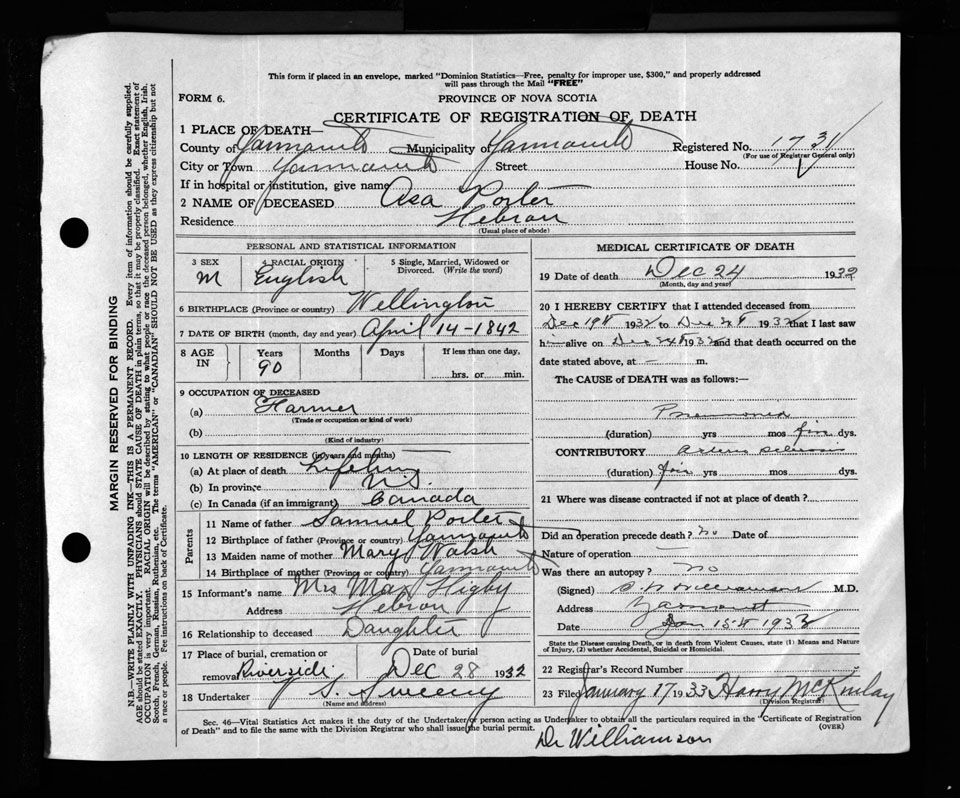 This form if placed in an envelope, marked "Dominion Statistics—Free, penalty for improper use, $300," and properly addressed
will pass through the Mail "FREE"
FORM 6.
PROVINCE OF NOVA SCOTIA
CERTIFICATE OF REGISTRATION OF DEATH
1 PLACE OF DEATH—
County of Yarmouth Municipality of Yarmouth Registered No. 1731
(For use of Registrar General only)
City or Town Yarmouth Street House No.
If in hospital or institution, give name
2 NAME OF DECEASED Asa Porter
Residence Hebron
(Usual place of abode)
PERSONAL AND STATISTICAL INFORMATION
3 SEX M
4 RACIAL ORIGIN English
5 Single, Married, Widowed or
Divorced. (Write the word)
6 BIRTHPLACE (Province or country) Wellington
7 DATE OF BIRTH (month, day and year) April 14-1842
8 AGE IN Years 90 Months Days If less than one day,
hrs. or min.
9 OCCUPATION OF DECEASED
(a) Farmer
(Trade or occupation or kind of work)
(b)
(Kind of industry)
10 LENGTH OF RESIDENCE (in years and months)
(a) At place of death Lifetime
(b) In province N.S.
(c) In Canada (if an immigrant) Canada
Parents
11 Name of father Samuel Porter
12 Birthplace of father (Province or country) Yarmouth
13 Maiden name of mother Mary Walsh
14 Birthplace of mother (Province or country) Yarmouth
15 Informant's name Mrs May Higby
Address Hebron
16 Relationship to deceased Daughter
17 Place of burial, cremation or
removal Riverside Dec 28 1932
18 Undertaker S. Sweeny
(Name and address)
MEDICAL CERTIFICATE OF DEATH
19 Date of death Dec 24 1932
(Month, day and year)
20 I HEREBY CERTIFY that I attended deceased from
Dec 19th 1932 to Dec 24 1932 that I last saw
h alive on Dec 24th 1932 and that death occurred on the
date stated above, at — m.
The CAUSE OF DEATH was as follows:—
Pneumonia
(duration) yrs mos five dys.
CONTRIBUTORY Arterio sclerosis
(duration) five yrs mos dys.
21 Where was disease contracted if not at place of death?
Did an operation precede death? no Date of
Nature of operation —
Was there an autopsy? no
(Signed) Williamson M.D.
Address Yarmouth
Date Jan 15th 1933
State the Disease causing Death, or in death from Violent Causes, state (1) Means and Nature
of Injury, (2) whether Accidental, Suicidal or Homicidal.
22 Registrar's Record Number
23 Filed January 17 1933 Harry McKinlay
(Division Registrar)
Sec. 46—Vital Statistics Act makes it the duty of the Undertaker or person acting as Undertaker to obtain all the particulars required in the "Certificate of Registration
of Death" and to file the same with the Division Registrar who shall issue the burial permit.
(OVER)
Dr Williamson
MARGIN RESERVED FOR BINDING
N.B.—WRITE PLAINLY WITH UNFADING INK—THIS IS A PERMANENT RECORD. Every item of information should be carefully supplied.
AGE should be stated EXACTLY. PHYSICIANS should STATE CAUSE OF DEATH in plain terms, so that it may be properly classified. Exact statement of
OCCUPATION is very important. RACIAL ORIGIN will be described by stating to what people or race the deceased person belonged, whether English, Irish,
Scotch, French, German, Russian, Ruthenian, etc. The terms "AMERICAN" or "CANADIAN" SHOULD NOT BE USED as they express citizenship but not
a race or people. Fee instructions on back of Certificate.